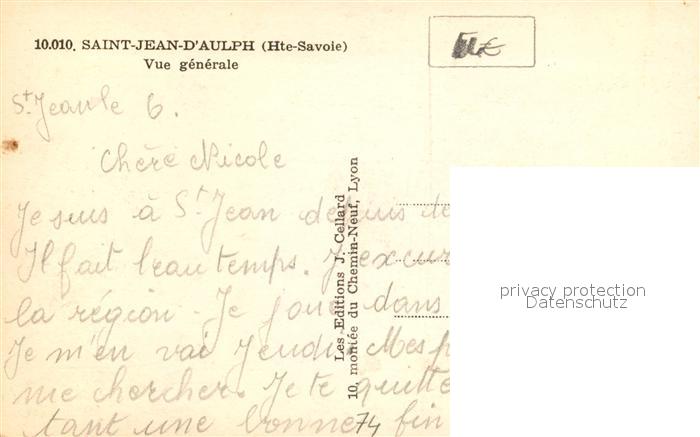 10.010. SAINT-JEAN-D'AULPH (Hte-Savoie)
Vue générale
St Jean le 6.
Chère Nicole
Je suis à St. Jean depuis
Il fait beau temps. J'excur
la région. Je joue dans
Je m'en vai Jeudi. Mes p
me chercher. Je te quitte
tant une bonne fin
74
Les Editions J. Cellard
10, montée du Chemin-Neuf, Lyon
privacy protection
Datenschutz